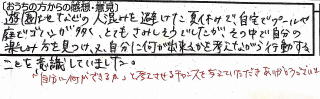 [おうちの方からの感想・意見]
遊園地などの人混みを避けた夏休みで、自宅でプールや
庭でゴハンが多く、ともさみしそうでしたが、その中で自分の
楽しみ方を見つけ、又、自分に何が出来るかを考えながら行動する
ことを意識していました。
"自分に何ができるか"と考えさせるチャンスを与えていただきありがとうございました